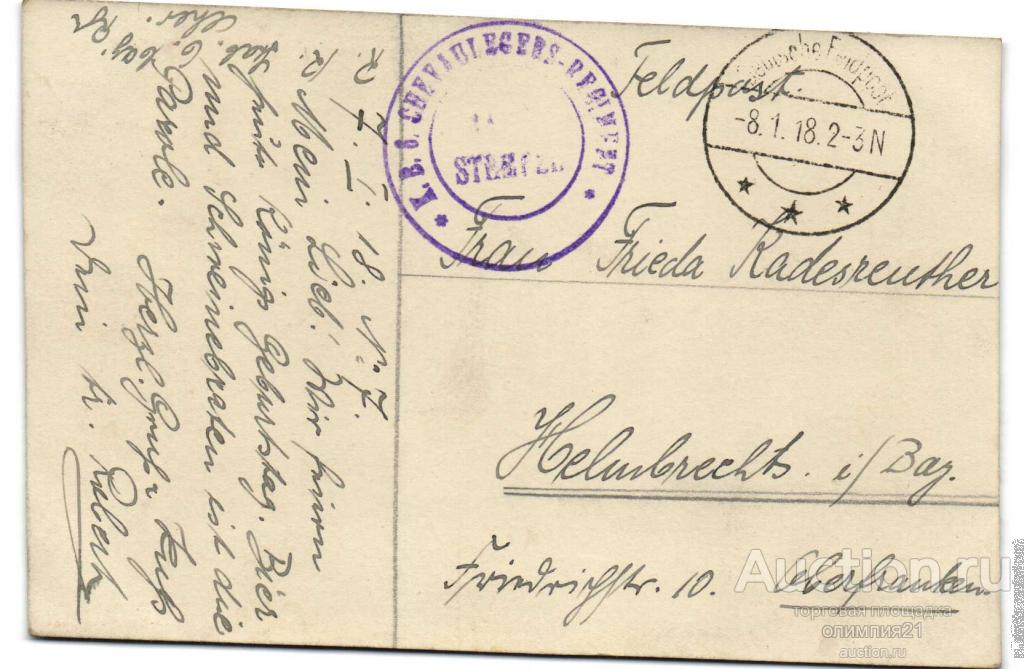 R. R. 7. I. 18. N. 7.
Mein Lieb! Wir feiern
heute Königs Geburtstag. Bier
und Schweinebraten ist die
Parole. Herzl. Gruß u. Kuß
Dein tr.
K. B. 6. CHEVAULEGERS-REGIMENT
Deutsche Feldpost
-8.1.18.2-3N
Feldpost.
Frau Frieda Kadesreuther
Helmbrechts i/Bay.
Friedrichstr. 10. Oberfranken.
Auction.ru
торговая площадка
олимпия21
auction.ru